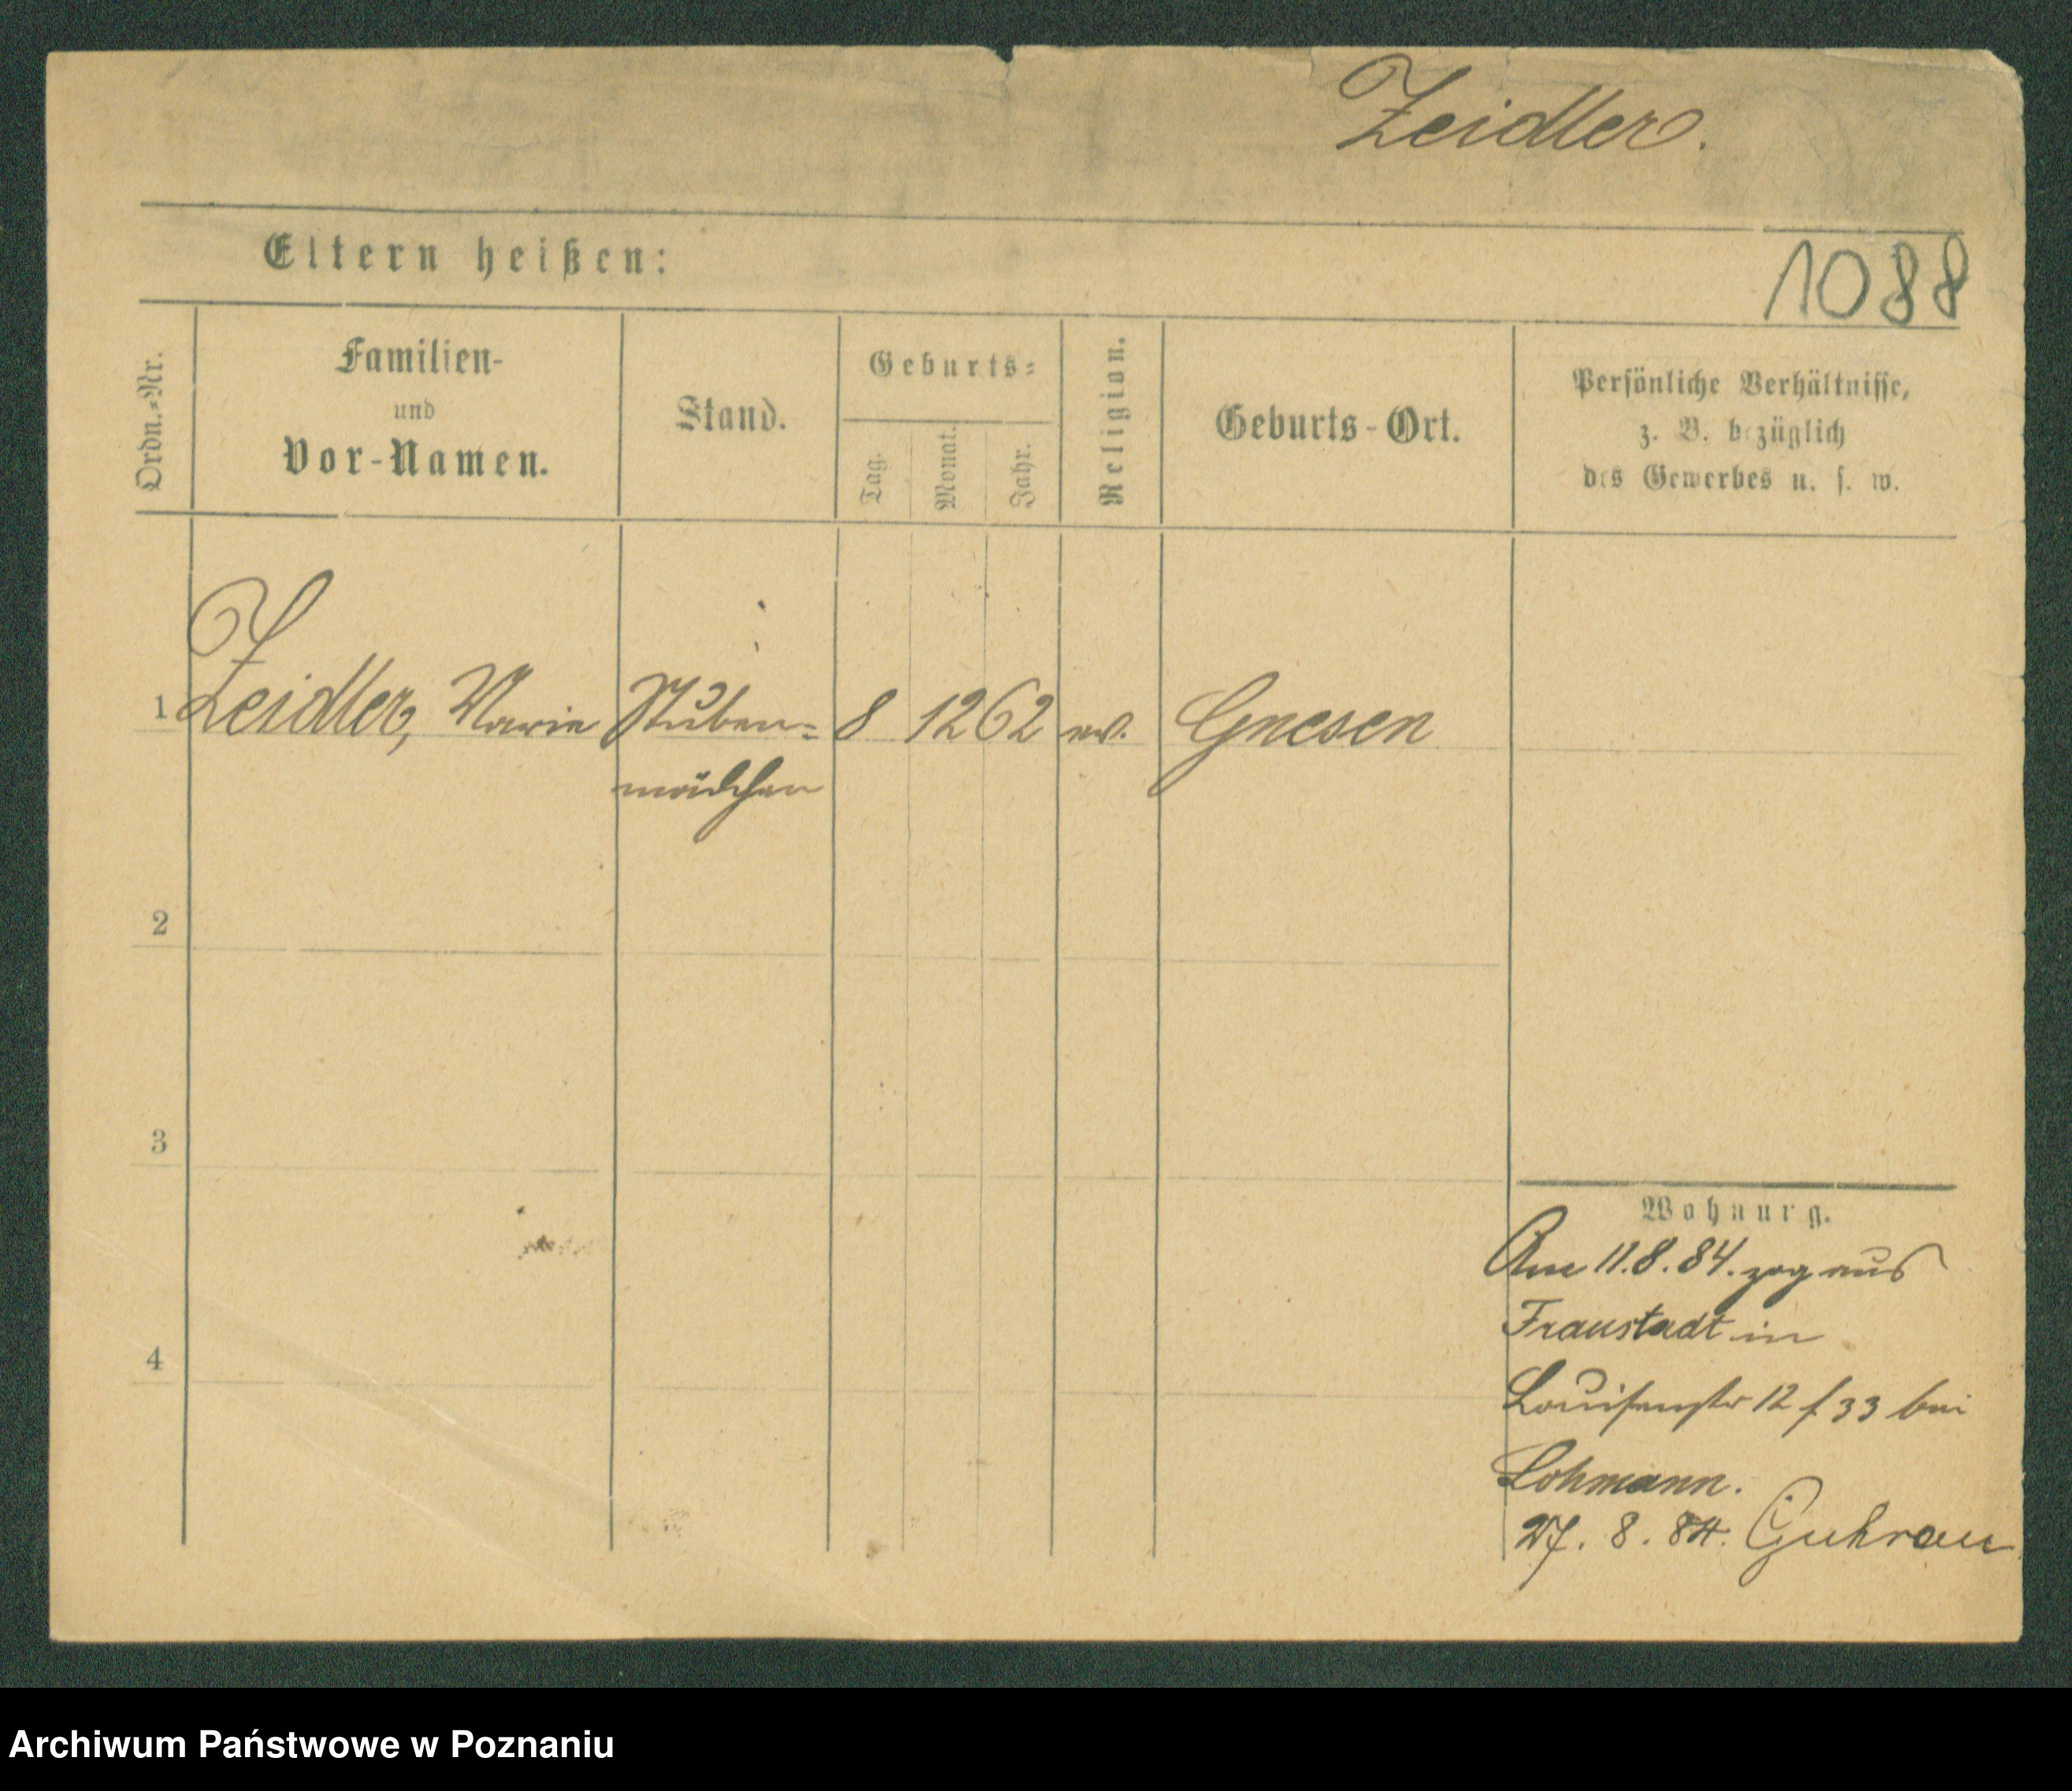 Zeidler.
Eltern heißen:
1088
Ordn.=Nr.
Familien-
und
Vor-Namen.
Stand.
Geburts=
Tag.
Monat.
Jahr.
Religion.
Geburts-Ort.
Persönliche Verhältnisse,
z. B. bezüglich
des Gewerbes u. s. w.
1 Zeidler, Marie Stuben= 8 12 62 ev. Gnesen
mädchen
2
3
4
Wohnung.
Am 11.8.84. zog aus
Fraustadt in
Louisenstr 12 f 33 bei
Lohmann.
27. 8. 84. Guhrau
Archiwum Państwowe w Poznaniu